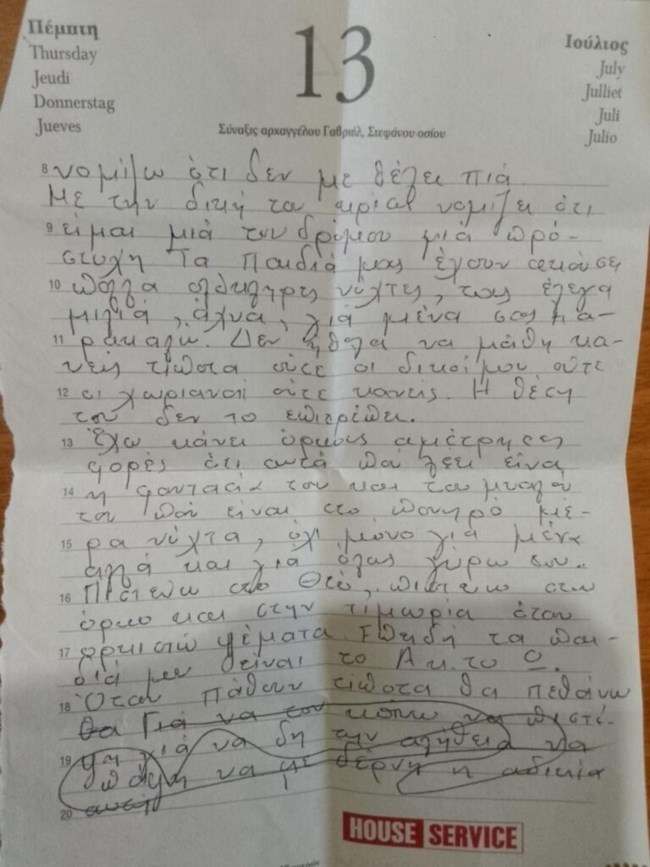 Πέμπτη
Thursday
Jeudi
Donnerstag
Jueves
13
Ιούλιος
July
Julliet
Juli
Julio
Σύναξις αρχαγγέλου Γαβριήλ, Στεφάνου οσίου
8 νομίζω ότι δεν με θέλει πιά
Με την δική του νομίζει ότι
9 είμαι μιά του δρόμου μιά πρό-
στυχη Τα παιδιά μας έχουν ακούσει
10 πολλά ολόκληρες νύχτες, τους έλεγα
μιλιά, άχνα, για μένα σας πα-
11 ρακαλώ. Δεν ήθελα να μάθη κα-
νείς τίποτα ούτε οι δικοί μου ούτε
12 οι χωριανοί ούτε κανείς. Η θέση
του δεν το επιτρέπει.
13 Έχω κάνει όρκους αμέτρητες
φορές ότι αυτά που λέει είναι
14 η φαντασία του και το μυαλό
του που είναι στο πονηρό μέ-
15 ρα νύχτα, όχι μόνο για μένα
αλλά και για όλους γύρω του..
16 Πιστεύω στο Θεό, πιστεύω στον
όρκο και στην τιμωρία όταν
17 ορκιστώ ψέματα Επειδή τα παι-
διά μου είναι το Α κ. το Ω.
18 Όταν πάθουν τίποτα θα πεθάνω
θα Γιά να τον κάνω να πιστέ-
19 ψη γιά να δη την αλήθεια να
πάψη να με δέρνη η αδικία
20 αυτή
HOUSE SERVICE